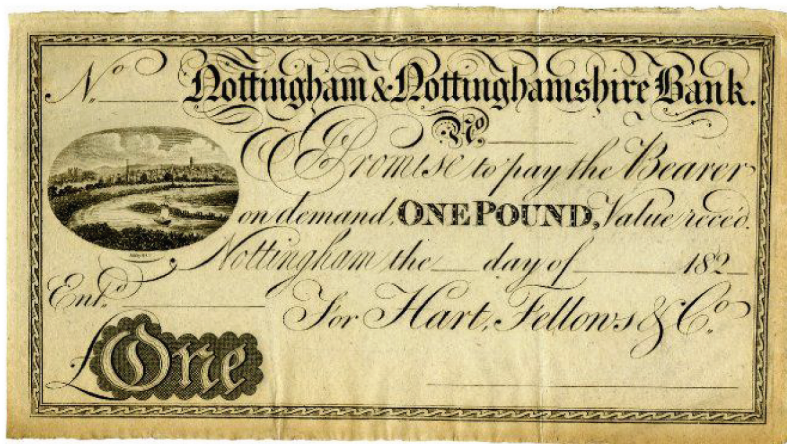 No Nottingham & Nottinghamshire Bank.
No
I Promise to pay the Bearer
on demand, ONE POUND, Value rece'd.
Nottingham the day of 182
Ent.d
For Hart, Fellows & Co.
£One